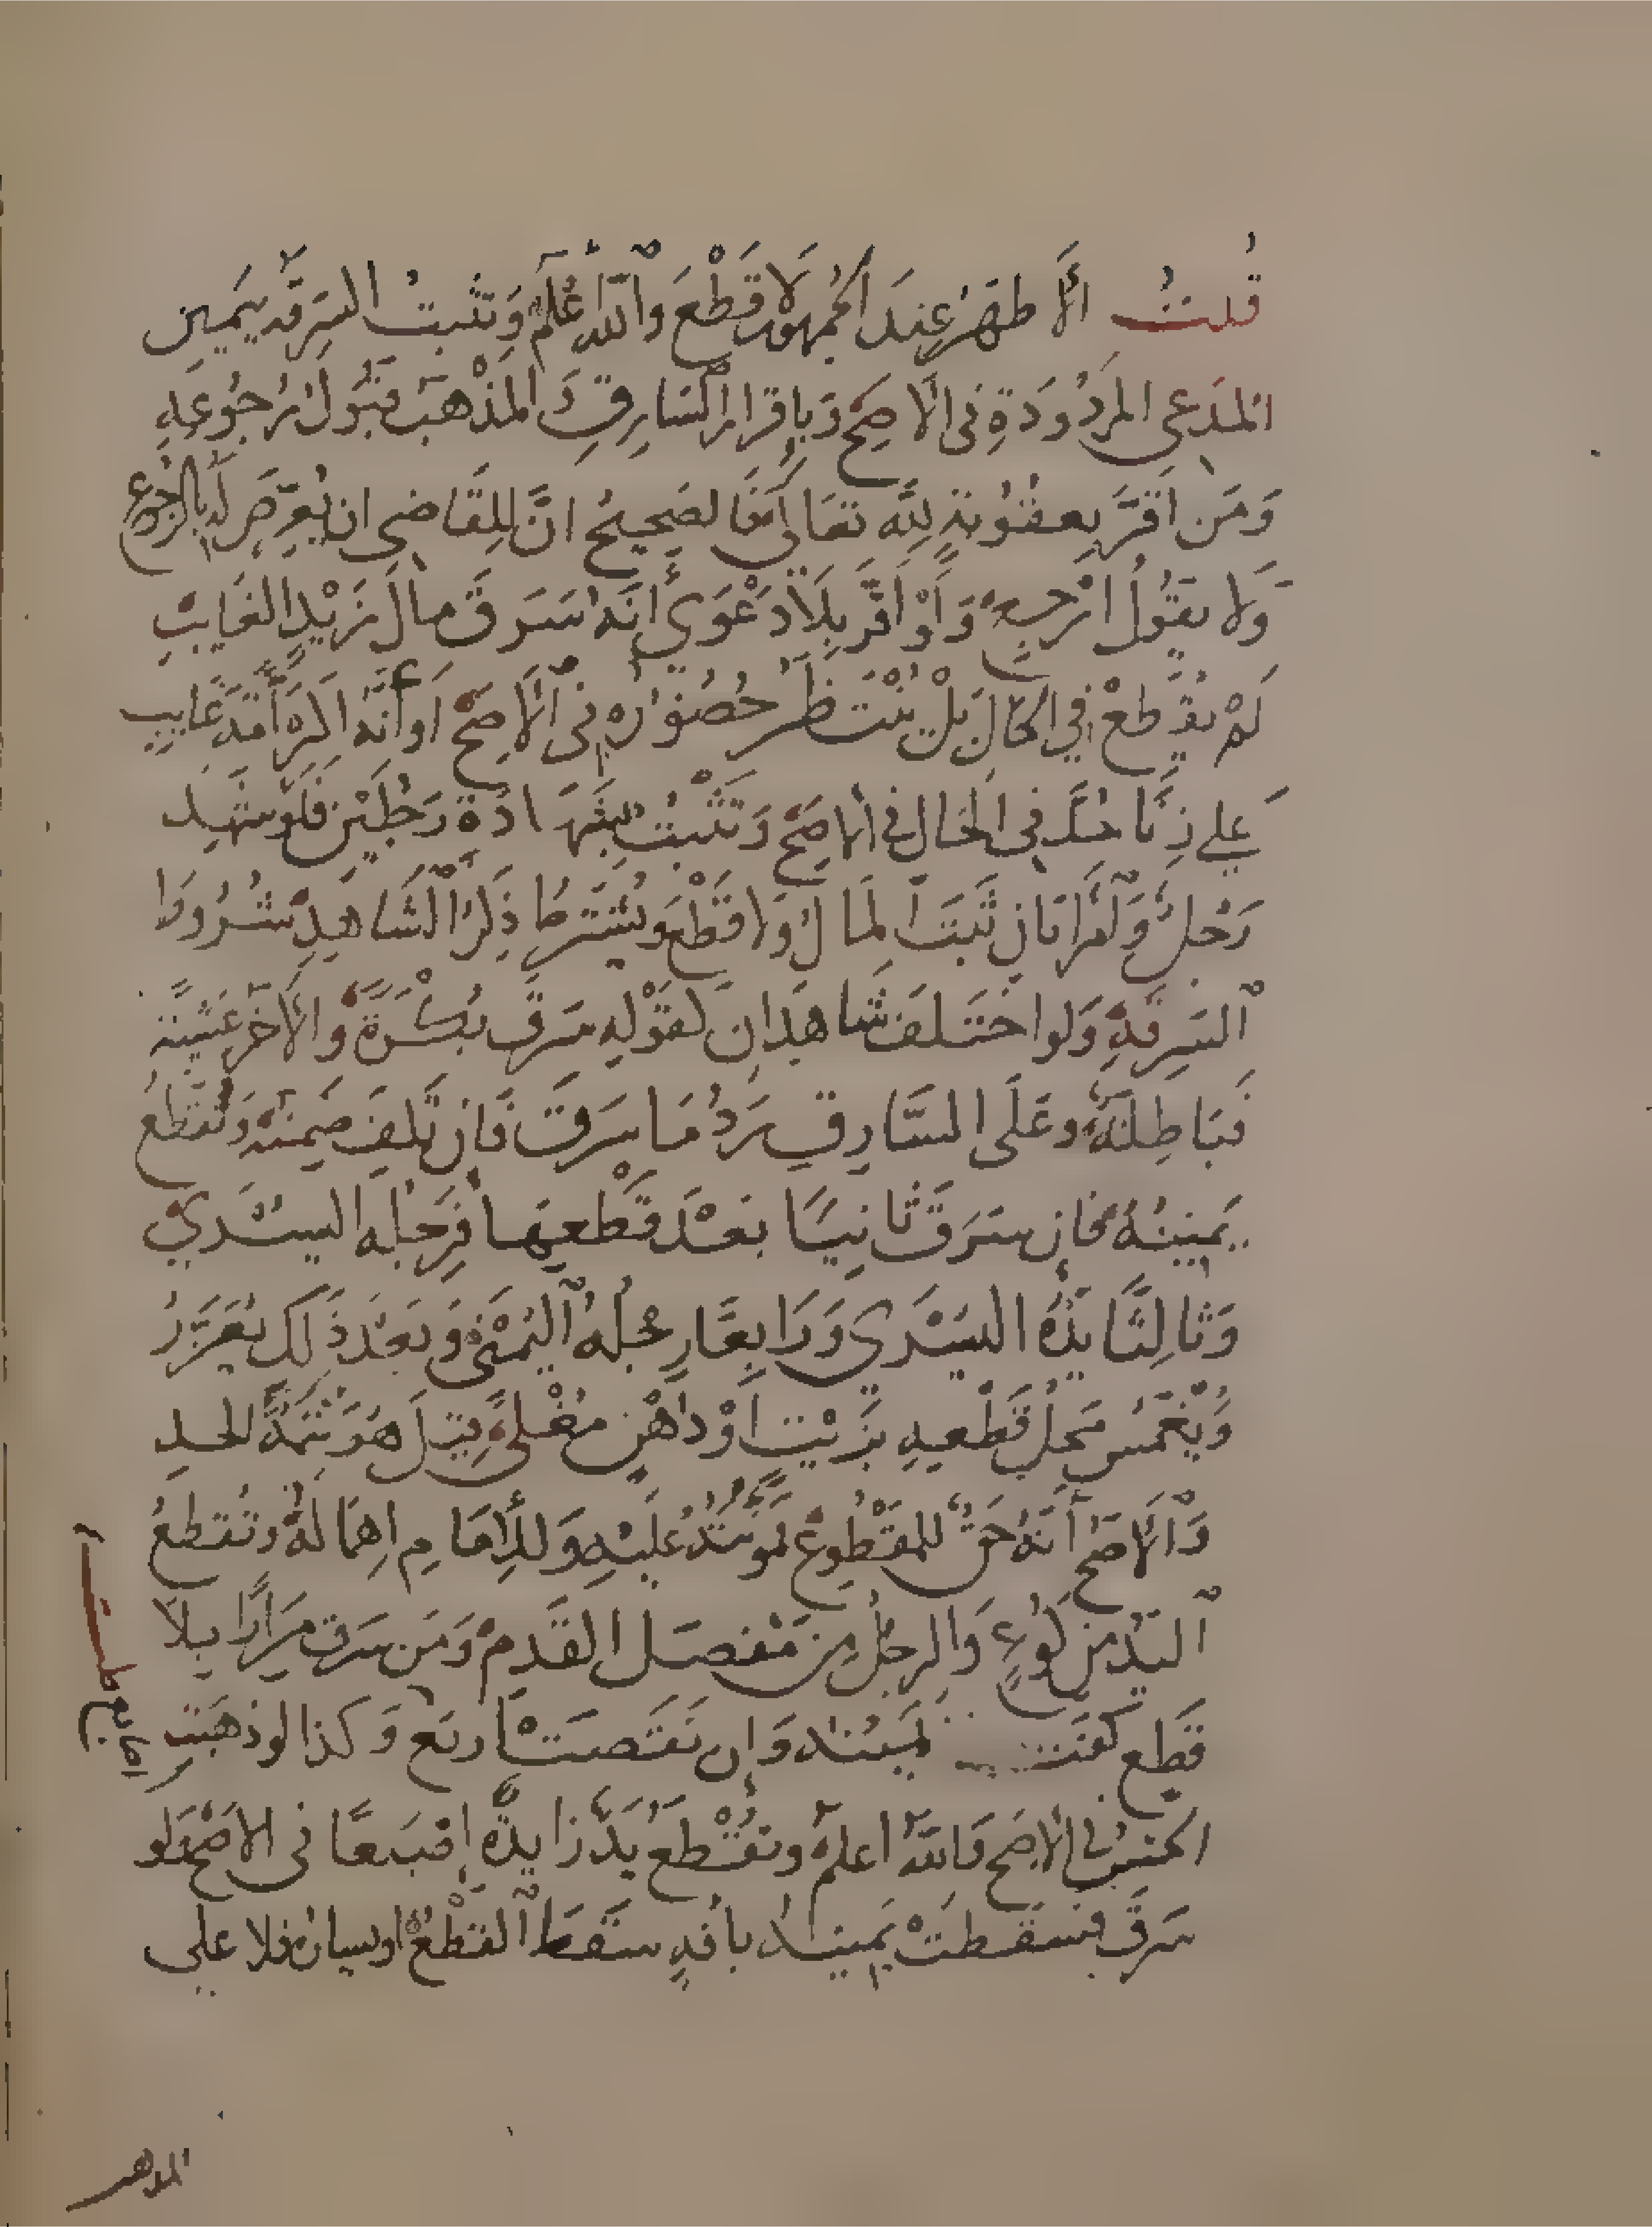 قُلتُ الأظهَرُ عِندَ الجُمهُور لَا قَطْعَ وٱللَّهُ أعْلَمُ وَتَثبتُ السَرِقَه بِيَمِينِ
المُدَعي المَردُودَةِ في الأَصَحِّ وَبِإقرارِ السَارِقِ وَالمَذْهَبُ قَبُولُ رُجُوعِهِ
وَمَن أقَرَّ بِعقُوبَةٍ لِلَّهِ تعَالي فَالصَحِيحُ انَّ لِلقَاضِي ان يُعَرِّضَ لَهُ بالرُجُوعِ
وَلا يقُولُ ارْجِعْ وَلَوْ أقَرَّ بِلَا دَعْوَي أنَّهُ سَرَقَ مالَ زَيْدٍ الغَايِبِ
لَمْ يُقْطَعْ في الحَالِ بَلْ يُنْتَظَرُ حُضُورُهُ في ٱلأَصَحِّ اوأنَّهُ اكرَهَ أمَةَ غَايبٍ
عَلي زِنًا حُدَّ في الحَال في الاصَحِّ وَتَثْبُتُ بِشَهَادَةِ رَجُلَيْنِ فَلَو شَهِدَ
رَجُلٌ وَٱمرَاتَانِ ثَبَتَ المَالُ وَلا قَطْعَ وَيُشْتَرطُ ذِكرُ ٱلشَاهِدِ شُرُوطَ
ٱلسَرِقَةِ وَلو اختَلَفَ شَاهِدَانِ كَقَوْلِهِ سَرَقَ بُكْرَةً وَالاخَرُ عَشِيَّةً
فَبَاطِلَةٌ وعَلَى السَّارِقِ رَدُ مَا سَرَقَ فَان تَلِفَ ضَمِنَهُ وَتُقطَعُ
يَمِينُهُ فَان سَرَقَ ثَانِيًا بَعْدَ قَطْعِهَا فَرِجْلُهُ اليُسْرَي
وَثَالِثًا يَدُهُ اليُسْرَي وَرَابِعًا رِجْلُهُ ٱليُمْنَي وَبَعْدَ ذَلِكَ يُعَزَّرُ
وَيُغْمَسُ مَحِلُ قَطْعِهِ بِزَيْتٍ أوْ دُهْنٍ مُغْلًي قِيلَ هُوَ تَتِمَّةٌ لِلحَدِ
وَٱلأَصَحُ أنَّهُ حَقٌ لِلمَقْطُوعِ فَمُؤْنَتُهُ عَلَيْهِ وَلِلإمَامِ اِهمَالُهُ وتُقطَعُ
ٱليَدُ مِن كُوعٍ وَالرِجْلُ مِن مَفْصِلِ القَدَمِ وَمَن سَرَقَ مِرَارًا بِلا
قَطْعٍ كَفَت يَمِينُهُ وَإن نَقَصَتْ أربَع وَكَذا لو ذهَبَتِ
الخَمسُ في الأصَحِ وَاللَّهُ أعلمُ وتُقْطَعُ يَدٌ زَايدَةٌ إصْبَعًا في الاصَحِّ وَلَو
سَرَقَ فسَقَطتْ يَمِينُهُ بِآفَةٍ سَقَطَ ٱلقَطْعُ او يسارُهُ فلا علي
المذهب